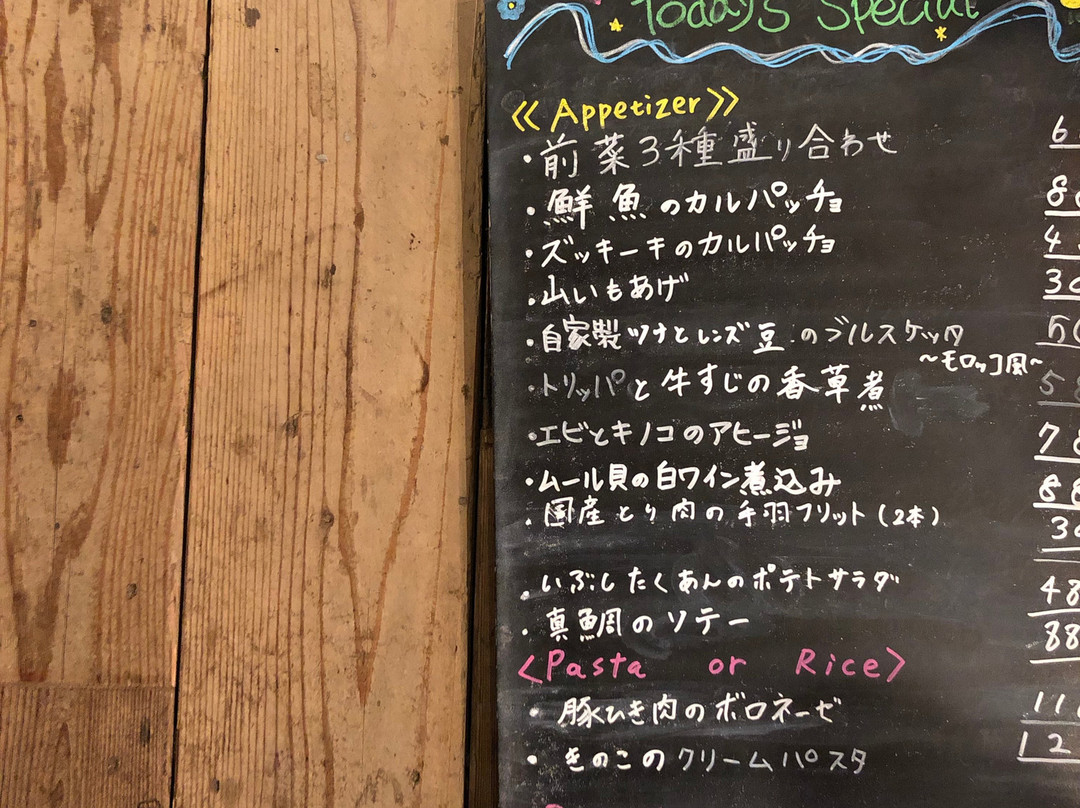 Today's Special
≪Appetizer≫ 6
・前菜3種盛り合わせ
・鮮魚のカルパッチョ 8
・ズッキーキのカルパッチョ 4
・山いもあげ 30
・自家製ツナとレンズ豆のブルスケッタ 50
~モロッコ風~
・トリッパと牛すじの香草煮 58
・エビとキノコのアヒージョ 78
・ムール貝の白ワイン煮込み 88
・国産とり肉の手羽フリット(2本) 30
・いぶしたくあんのポテトサラダ 48
・真鯛のソテー 88
<Pasta or Rice>
・豚ひき肉のボロネーゼ 11
・きのこのクリームパスタ 12